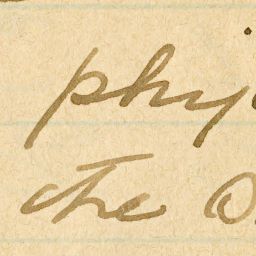 phy
the